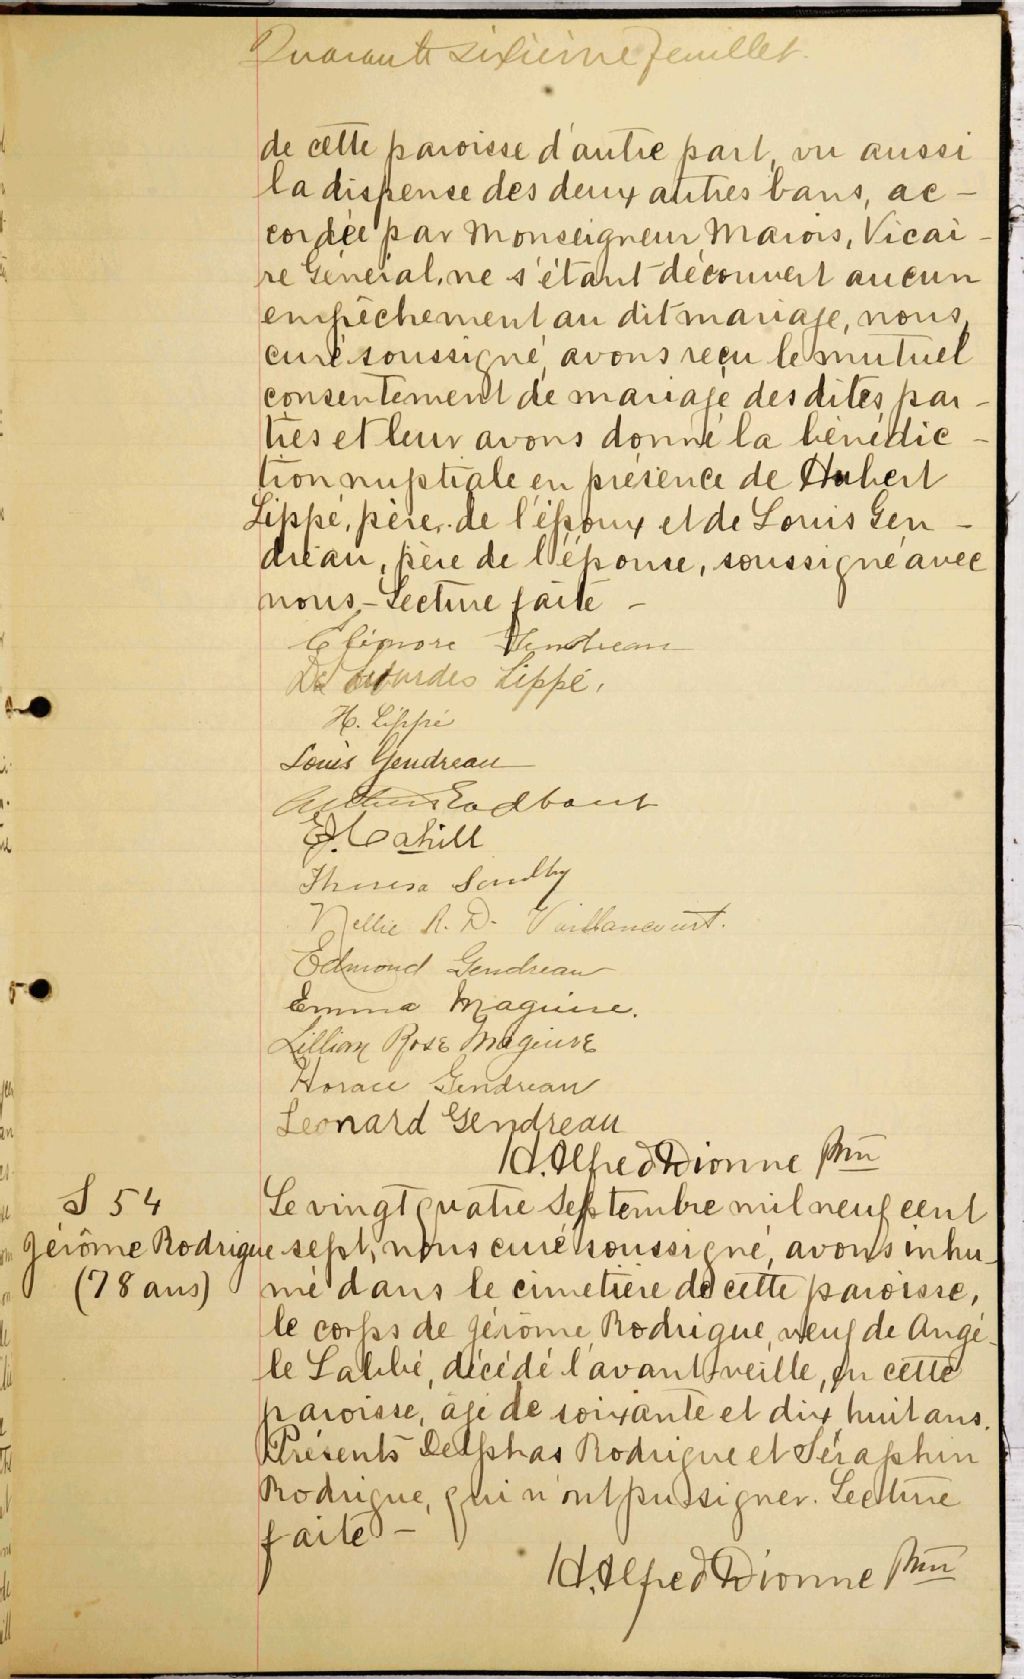 Quarante sixième feuillet.
de cette paroisse d'autre part, vu aussi
la dispense des deux autres bans, ac-
cordée par Monseigneur Marois, Vicai-
re Général, ne s'étant découvert aucun
empêchement au dit mariage, nous,
curé soussigné, avons reçu le mutuel
consentement de mariage des dites par-
ties et leur avons donné la bénédic-
tion nuptiale en présence de Hubert
Lippé, père de l'époux et de Louis Gen-
dreau, père de l'épouse, soussigné avec
nous. - Lecture faite -
Gendreau
Lippé,
H. Lippé
Louis Gendreau
Arthur Rodbout
E. J. Cahill
Theresa
Nellie R. D. Vaillancourt.
Edmond Gendreau
Emma Maguire.
Lillian Rose Maguire
Horace Gendreau
Leonard Gendreau
H. Alfred Dionne Ptre
S 54
Jérôme Rodrigue
(78 ans)
Le vingt quatre Septembre mil neuf cent
sept, nous curé soussigné, avons inhu-
mé dans le cimetière de cette paroisse,
le corps de Jérôme Rodrigue, veuf de Angè-
le Labbé, décédé l'avant veille, en cette
paroisse, âgé de soixante et dix huit ans.
Présents Delphas Rodrigue et Séraphin
Rodrigue, qui n'ont pu signer. Lecture
faite -
H. Alfred Dionne Ptre